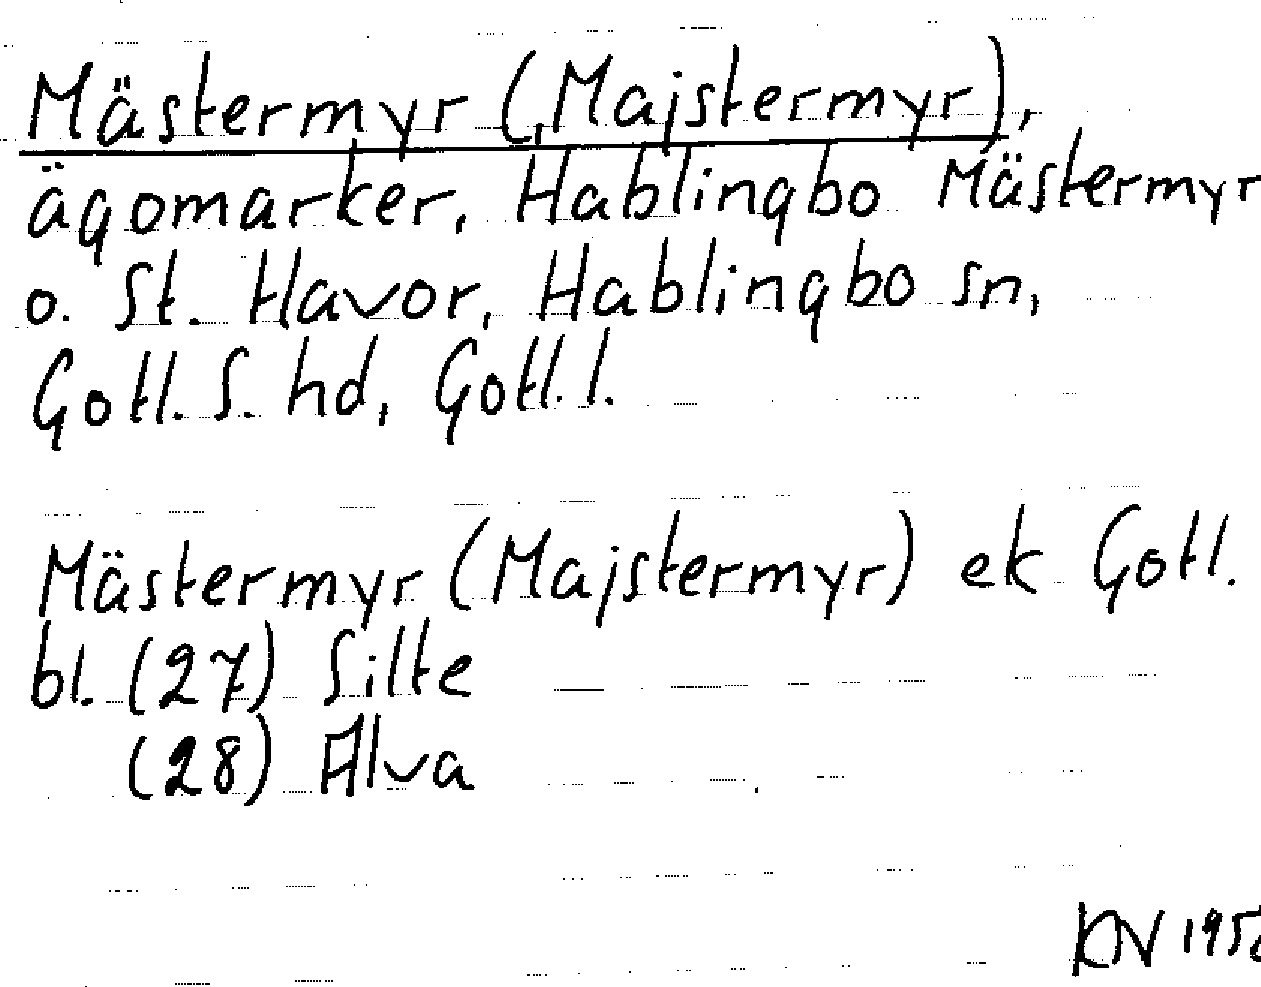 Mästermyr (Majstermyr),
ägomarker, Hablingbo Mästermyr
o. St. Havor, Hablingbo sn,
Gotl. S. hd, Gotl. l.
Mästermyr (Majstermyr) ek Gotl.
bl. (27) Silte
(28) Alva